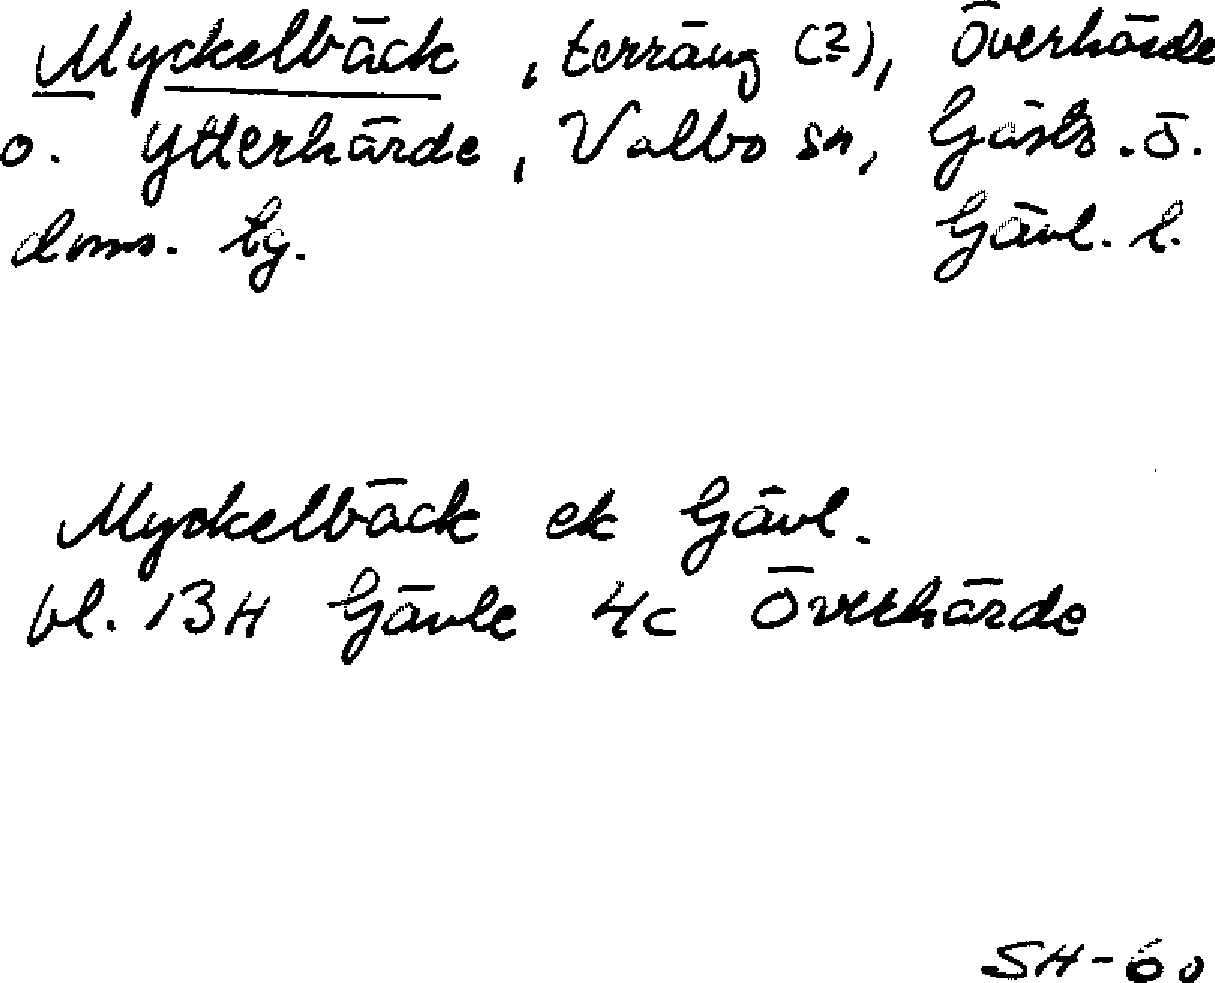 Myckelbäck, terräng (?), Överhärde
o. Ytterhärde, Valbo sn, Gästr. Ö.
doms. tg. Gävl. l.
Myckelbäck ek Gävl.
bl. 13H Gävle 4c Överhärde
SH-60